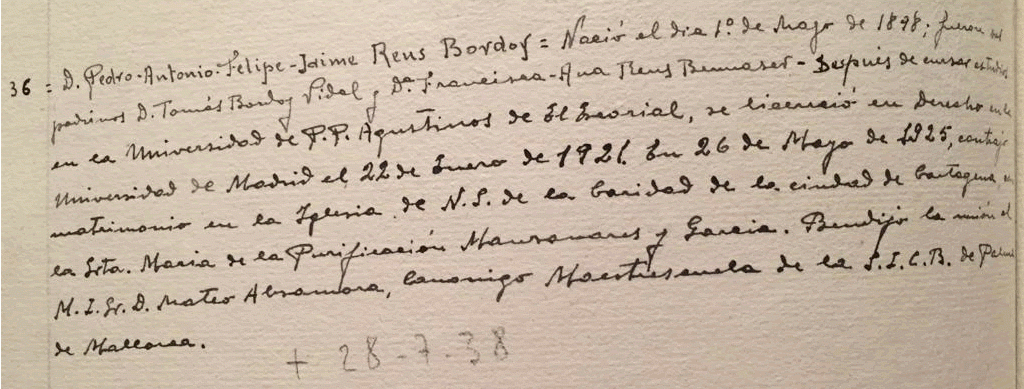 36 = D. Pedro-Antonio-Felipe-Jaime Reus Bordoy = Nació el dia 1º de Mayo de 1898; fueron sus
padrinos D. Tomás Bordoy Vidal y Dª Francisca-Ana Reus Bennaser - Después de cursar estudios
en la Universidad de P.P. Agustinos de El Escorial, se licenció en Derecho en la
Universidad de Madrid el 22 de Enero de 1921. En 26 de Mayo de 1925, contrajo
matrimonio en la Iglesia de N.S. de la Caridad de la ciudad de Cartagena,
la Srta. Maria de la Purificación Manzanares y Garcia. Bendijo la unión el
M.I.Sr.D. Mateo Alzamora, Canonigo Maestrescuela de la S.I.C.B. de Palma
de Mallorca.
+ 28-7-38